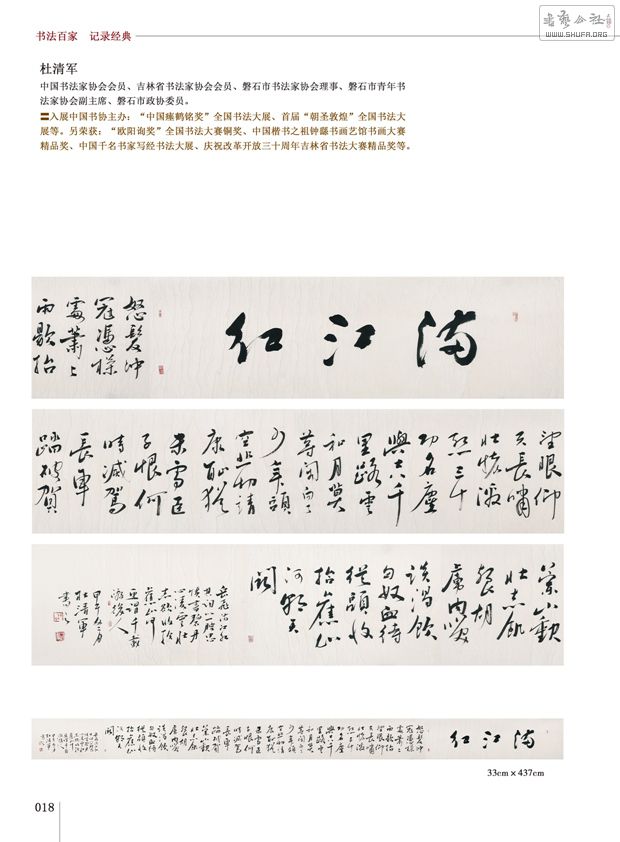 书艺公社
WWW.SHUFA.ORG
书法百家 记录经典
杜清军
中国书法家协会会员、吉林省书法家协会会员、磐石市书法家协会理事、磐石市青年书
法家协会副主席、磐石市政协委员。
入展中国书协主办：“中国瘗鹤铭奖”全国书法大展、首届“朝圣敦煌”全国书法大
展等。另荣获：“欧阳询奖”全国书法大赛铜奖、中国楷书之祖钟繇书画艺馆书画大赛
精品奖、中国千名书家写经书法大展、庆祝改革开放三十周年吉林省书法大赛精品奖等。
满江红
怒髮冲
冠凭栏
处萧萧
雨歇抬
望眼仰
天长啸
壮怀激
烈三十
功名尘
与土八千
里路云
和月莫
等闲白了
少年头
空悲切靖
康耻犹
未雪臣
子恨何
时灭驾
长车
踏破贺
兰山缺
壮志饥
餐胡
虏肉笑
谈渴饮
匈奴血待
从头收
拾旧山
河朝天
阙
岳飞满江红
甲午
杜清军
书
满江红
33cm×437cm
018